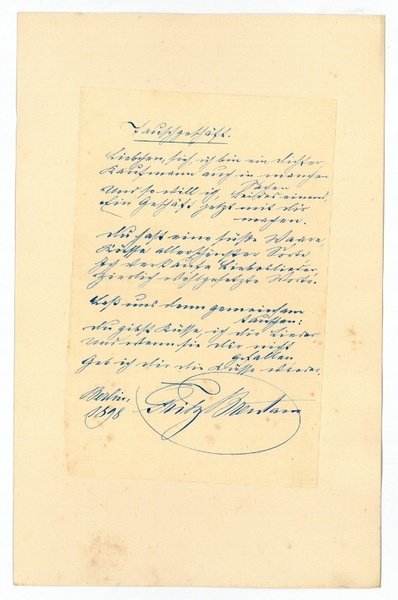 Tauschgeschäft.
Liebchen, sieh, ich bin ein Dichter,
Kaufmann auch in manchen
Sachen
Und so will ich, beides einend,
Ein Geschäft jetzt mit dir
machen.
Du hast eine süße Waare,
Küsse allerfeinster Sorte,
Ich verkaufe Liebeslieder,
Zierlich wohlgesetzte Worte.
Laß uns denn gemeinsam
tauschen:
Du gibst Küsse, ich die Lieder
Und wenn sie dir nicht
gefallen
Geb ich dir die Küsse wieder.
Berlin,
1898.
Fritz